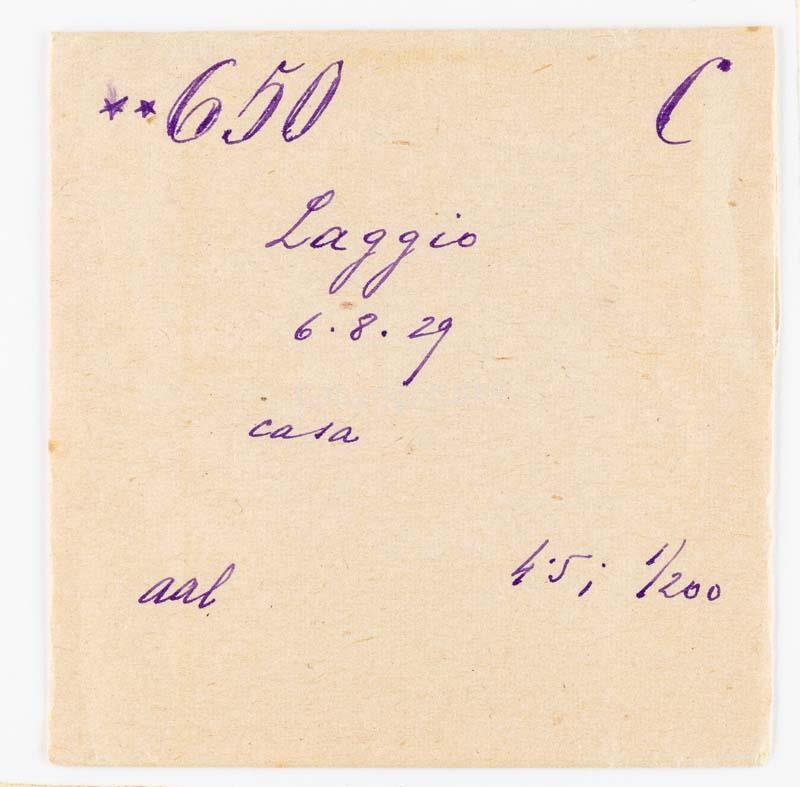 **650 C
Laggio
6.8.29
casa
aal 4.5; 1/200